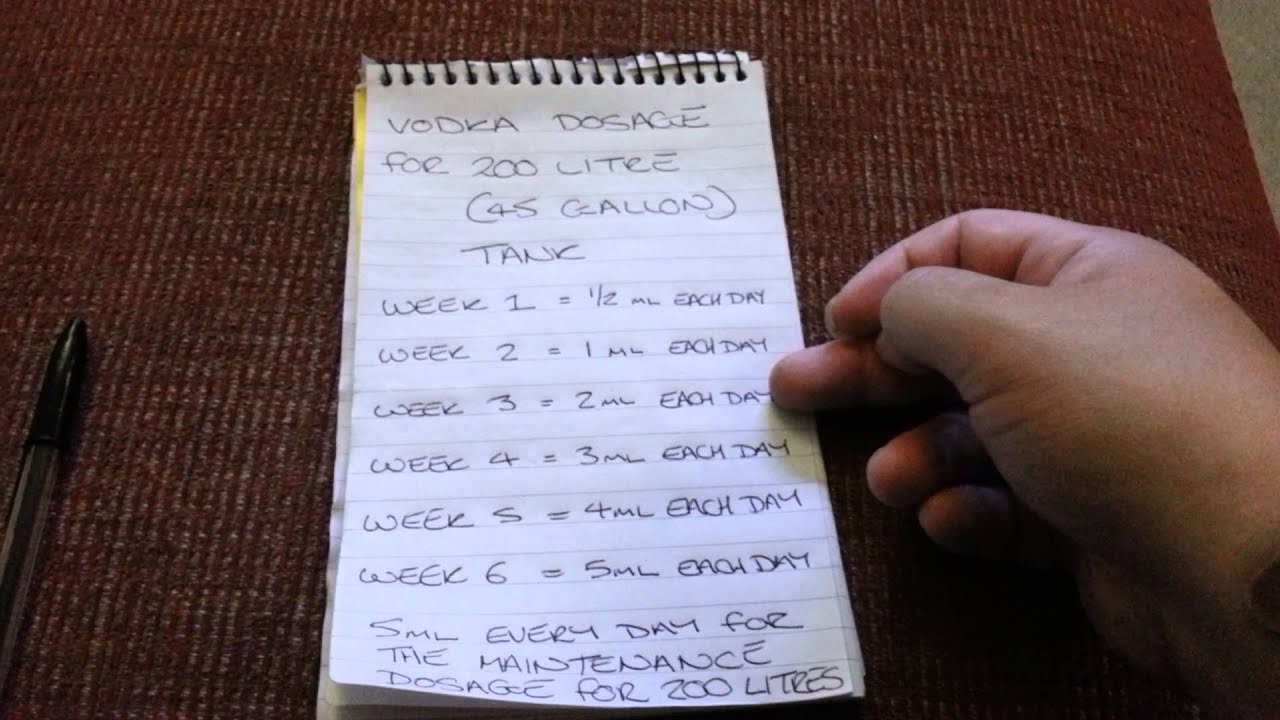 VODKA DOSAGE
FOR 200 LITRE
(45 GALLON)
TANK
WEEK 1 = 1/2 ML EACH DAY
WEEK 2 = 1 ML EACH DAY
WEEK 3 = 2ML EACH DAY
WEEK 4 = 3ML EACH DAY
WEEK 5 = 4ML EACH DAY
WEEK 6 = 5ML EACH DAY
5ML EVERY DAY FOR
THE MAINTENANCE
DOSAGE FOR 200 LITRES